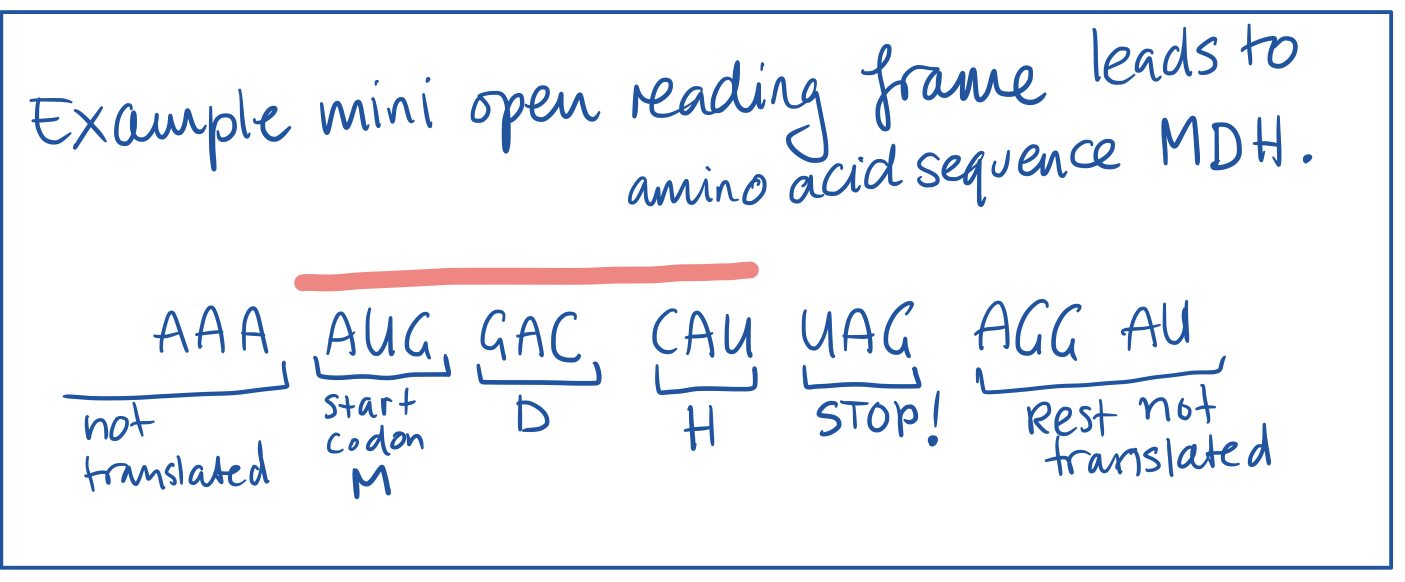 Example mini open reading frame leads to
amino acid sequence MDH.
AAA AUG GAC CAU UAG AGG AU
not translated
start codon M
D
H
STOP!
Rest not translated